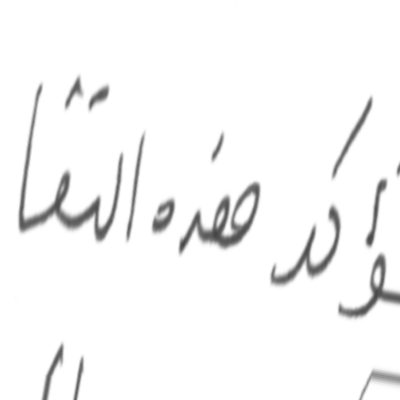 ؤكد هذه التقا